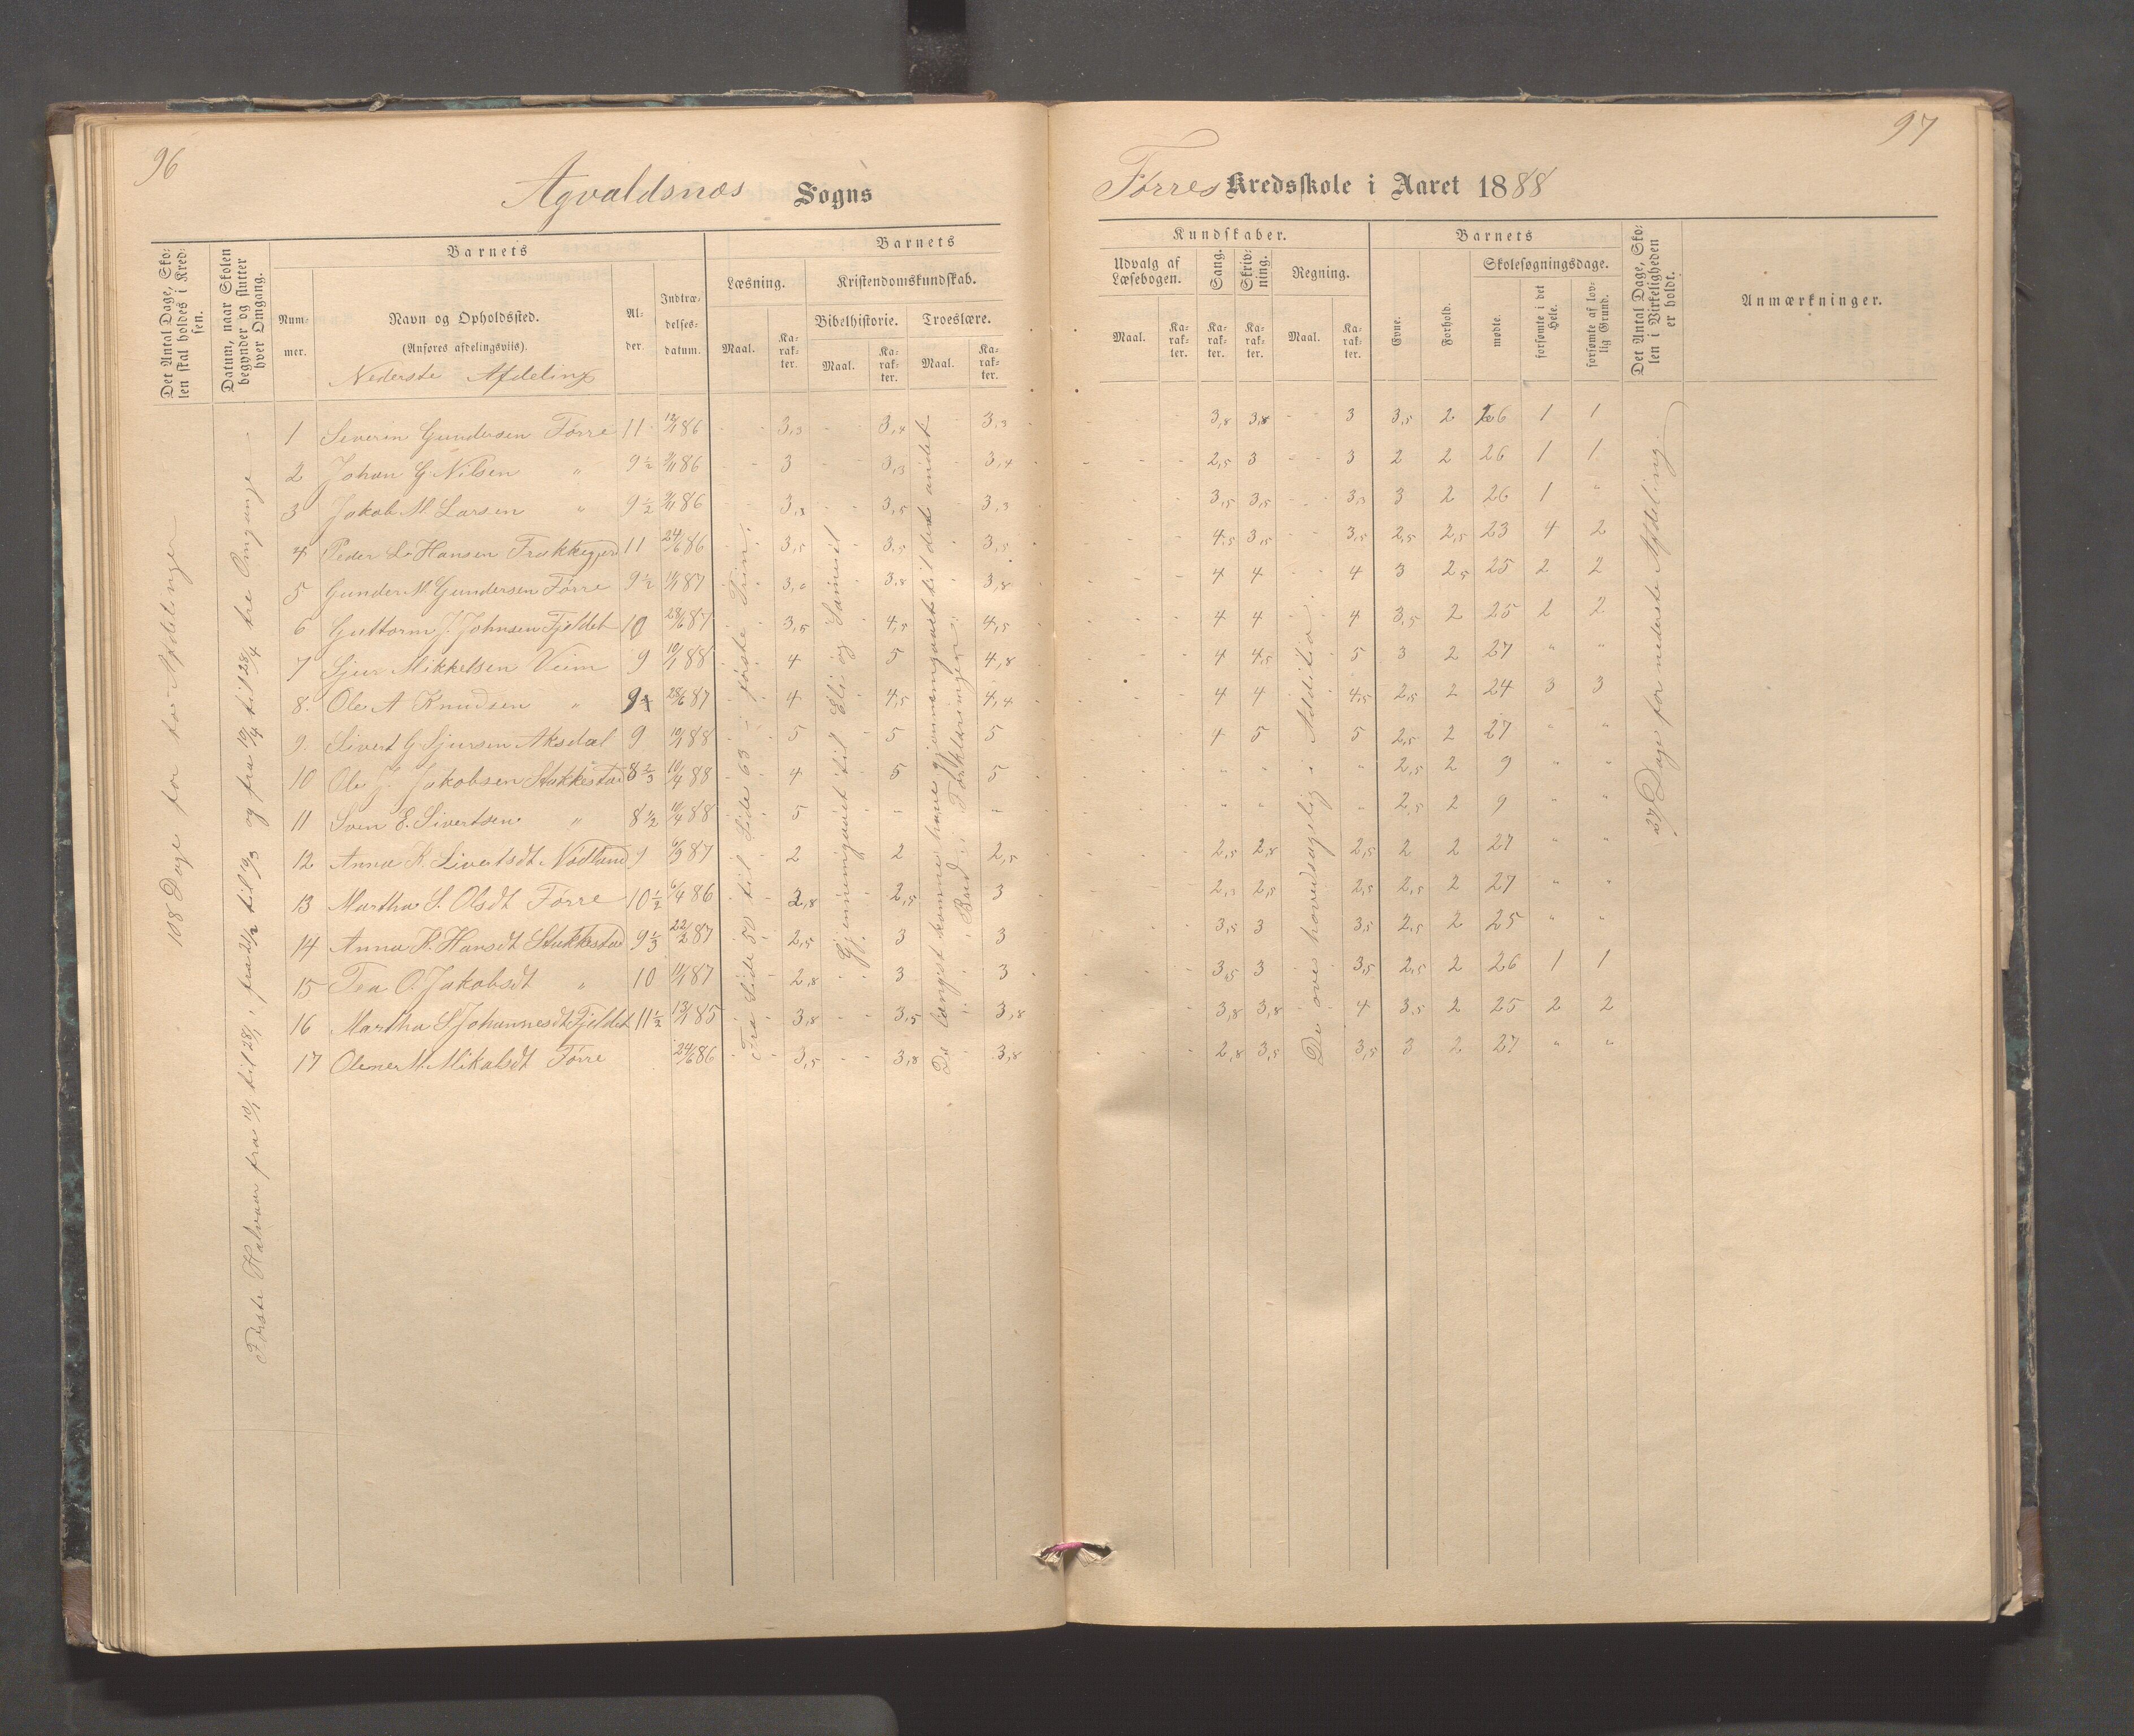 96
Agvaldsnæs Sogns
Det Antal Dage, Sko-
len skal holdes i Kred-
sen.
Datum, naar Skolen
begynder og slutter
hver Omgang.
Barnets
Num-
mer.
Navn og Opholdssted.
(Anføres afdelingsviis).
Nederste Afdeling
Al-
der.
Indtræ-
delses-
datum.
Barnets
Læsning.
Maal.
Ka-
rak-
ter.
Kristendomskundskab.
Bibelhistorie.
Maal.
Ka-
rak-
ter.
Troeslære.
Maal.
Ka-
rak-
ter.
108 Dage for to Afdelinger
Første Halvaar fra 10/1 til 28/1, fra 21/2 til 9/3 og fra 10/4 til 28/4 tre Omgange
1 Severin Gundersen Førre 11 12/1 86 3,3 3,4 3,3
2 Johan G. Nilsen " 9 1/2 2/11 86 3 3,3 3,4
3 Jakob M. Larsen " 9 1/2 2/11 86 3,3 3,5 3,3
4 Peder L. Hansen 11 24/6 86 3,5 3,5 3,5
5 Gunder M. Gundersen Førre 9 1/2 11/1 87 3,8 3,8
6 Guttorm J. Johnsen Fjeldet 10 28/6 87 3,5 4,5 4,5
7 Sjur Mikkelsen Veim 9 10/1 88 4 5 4,8
8. Ole A Knudsen " 9 28/6 87 4 4,5 4,4
9. Sivert G. Sjursen Aksdal 9 10/4 88 5 5 5
10 Ole J. Jakobsen Stakkestad 8 2/3 10/4 88 4 5 5
11 Sven E. Sivertsen " 8 1/2 10/4 88 5 " "
12 Anna K. Sivertsdt Nødland 9 6/3 87 2 2 2,5
13 Martha S. Olsdt Førre 10 1/2 6/4 86 2,8 2,5 3
14 Anna K. Hansdt Stakkestad 9 1/3 22/2 87 2,5 3 3
15 Tea O. Jakobsdt " 10 11/1 87 2,8 3 3
16 Martha S Johannesdt Fjeldet 11 1/2 13/1 85 3,8 3,5 3,8
17 Olene M. Mikalsdt Førre 24/6 86 3,5 3,8 3,8
Fra Side 50 til Side 63 i første Trin.
Gjennemgaaet til Eli og Samuel
De længst komne have gjennemgaaet til det andet
Bud i Forklaringen.
97
Førres Kredsskole i Aaret 1888
Kundskaber.
Udvalg af
Læsebogen.
Maal.
Ka-
rak-
ter.
Sang.
Ka-
rak-
ter.
Skriv-
ning.
Ka-
rak-
ter.
Regning.
Maal.
Ka-
rak-
ter.
Barnets
Evne.
Forhold.
Skolesøgningsdage.
mødte.
forsømte i det
Hele.
forsømte af lov-
lig Grund.
Det Antal Dage, Sko-
len i Virkeligheden
er holdt.
Anmærkninger.
3,8 3,8 3 3,5 2 26 1 1
2,5 3 3 2 2 26 1 1
3,5 3,5 3,3 3 2 26 1 "
4,5 3,5 3,5 2,5 2,5 23 4 2
4 4 4 3 2,5 25 2 2
4 4 4 3,5 2 25 2 2
4 4,5 5 3 2 27 " "
4 4 4,5 2,5 2 24 3 3
4 5 5 2,5 2 27 " "
" " " 2,5 2 9 " "
" " " 2,5 2 9 " "
2,5 2,8 2,5 2 2 27 " "
2,3 2,5 2,5 2,5 2 27 " "
3,5 3 3,5 2,5 2 25 " "
3,5 3 3,5 2,5 2 26 1 1
3,8 3,8 4 3,5 2 25 2 2
2,8 3,5 3,5 3 2 27 " "
De øve hovedsagelig i Addition.
27 Dage for nederste Afdeling.